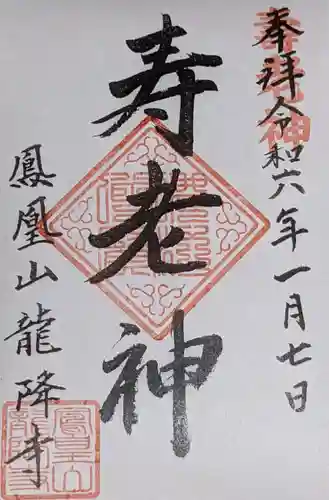 奉拝 令和六年一月七日
寿老神
鳳凰山龍降寺